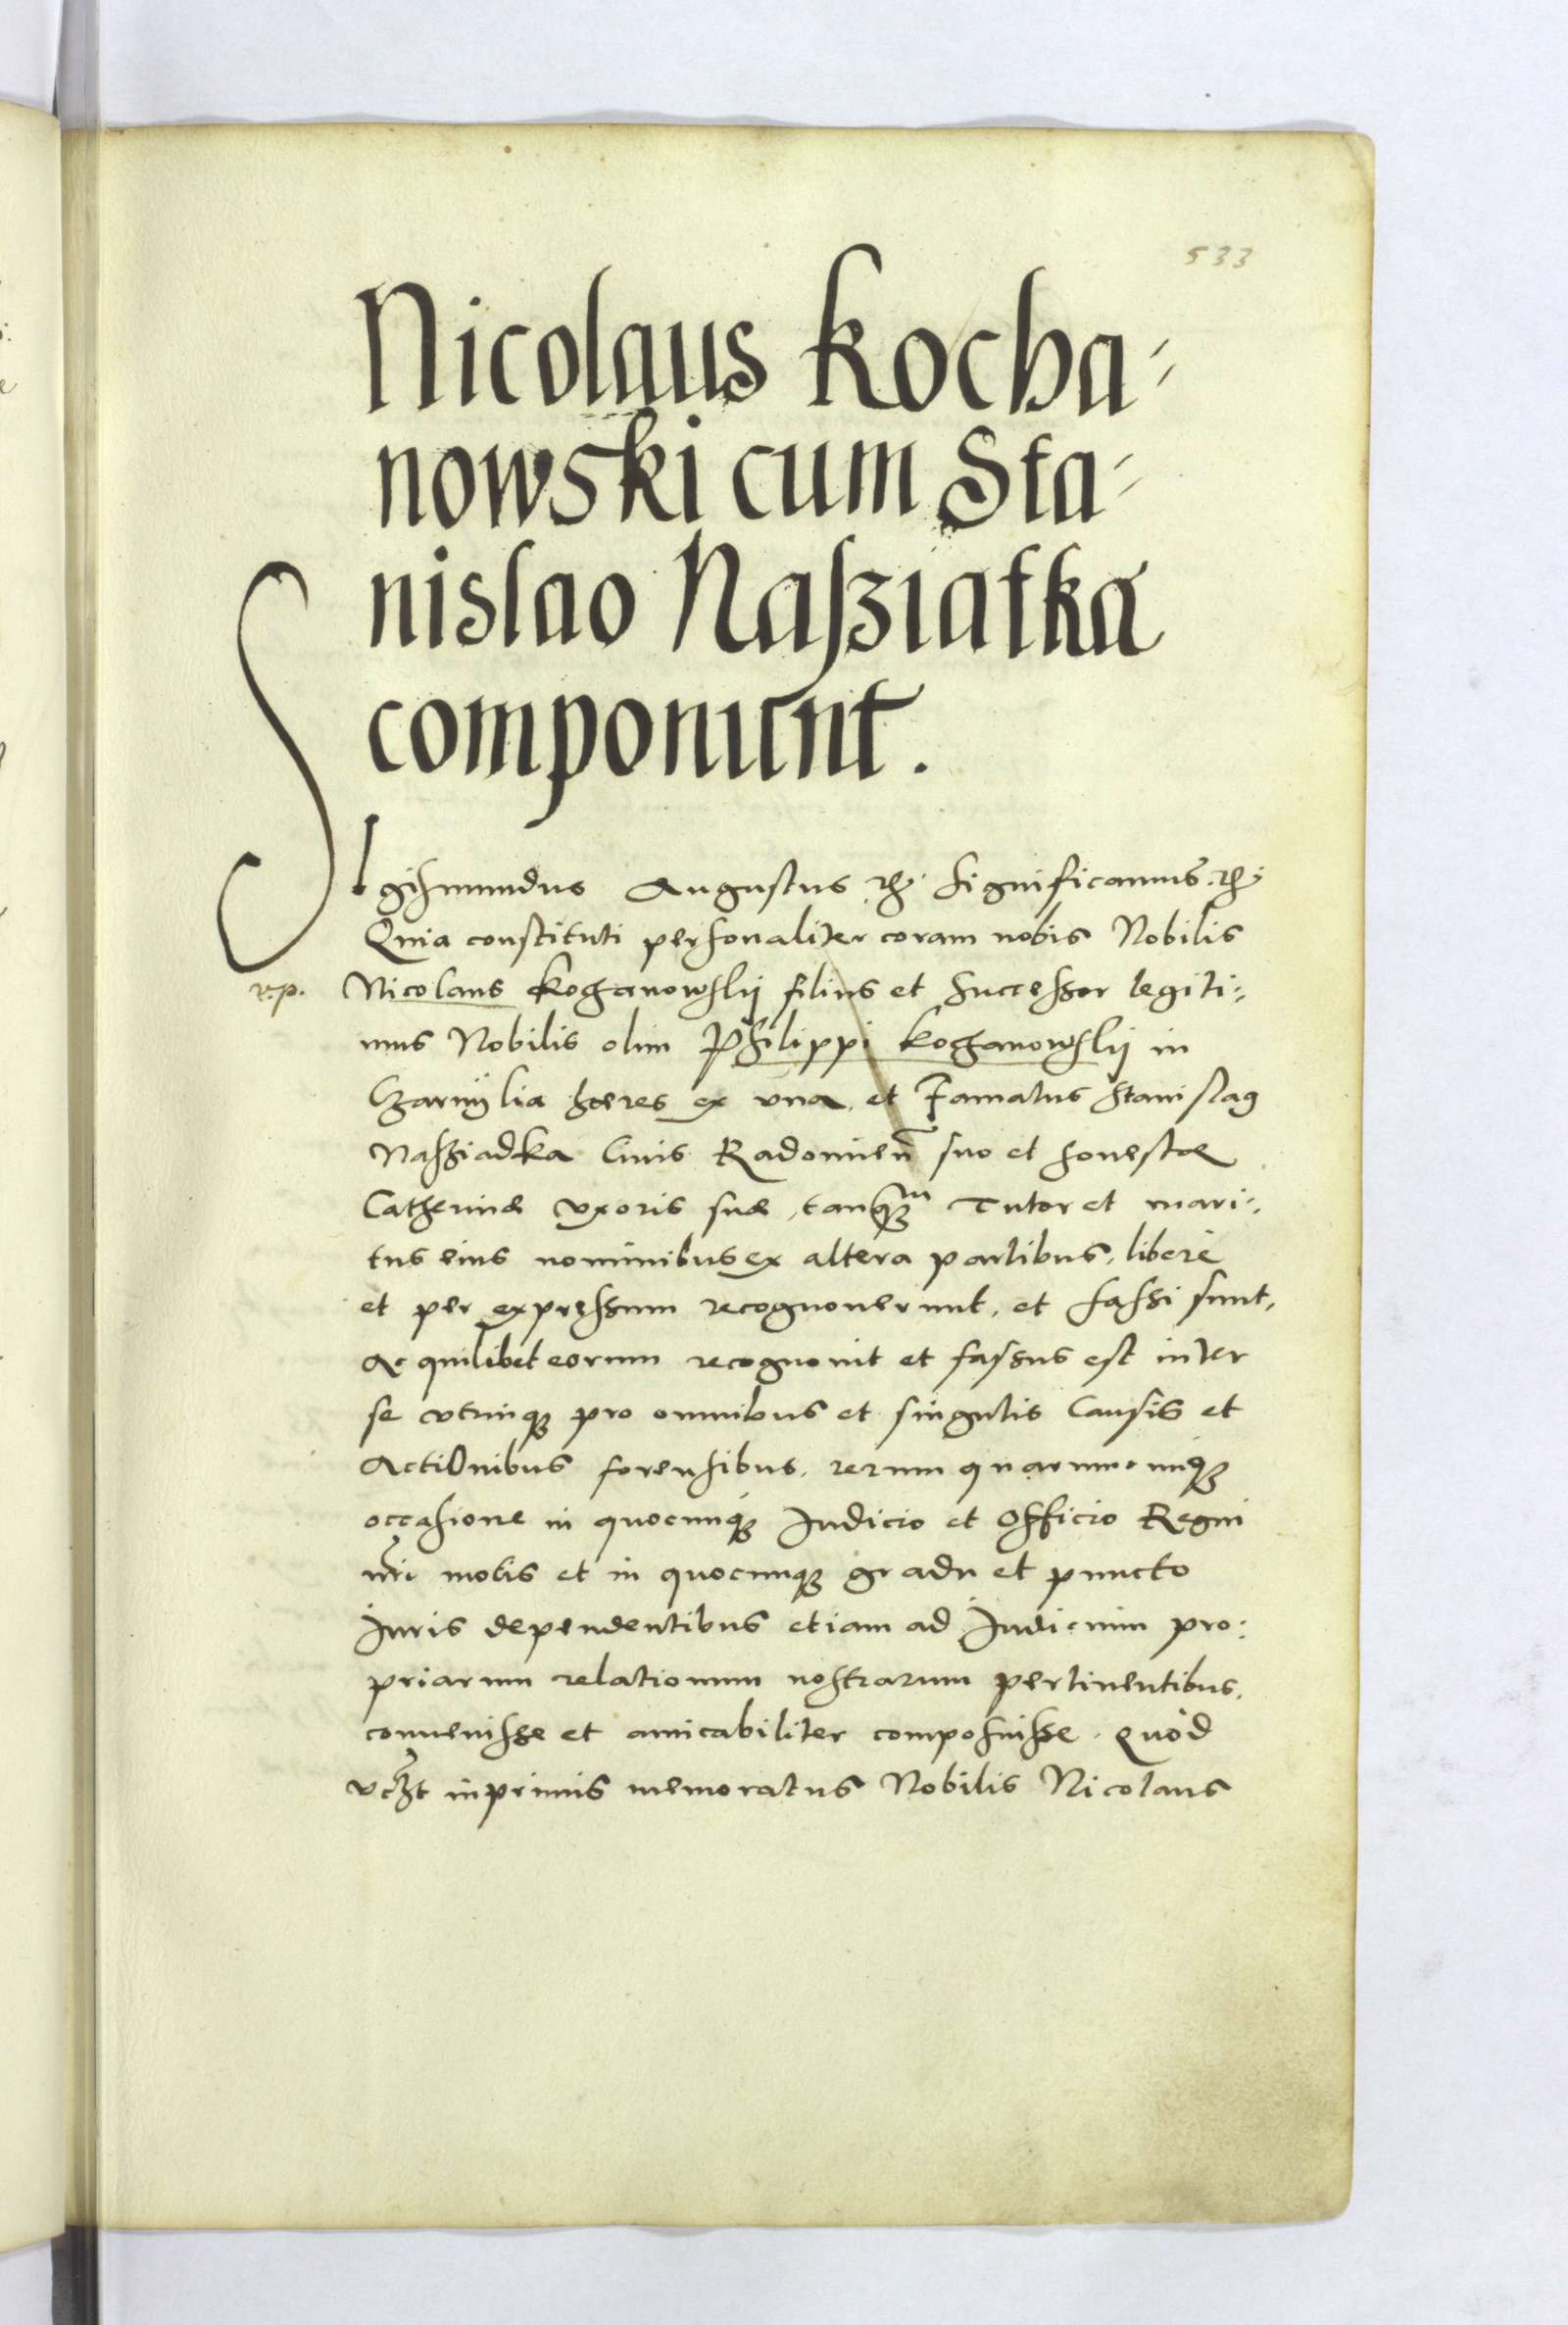 533
Nicolaus Kocha-
nowski cum Sta-
nislao Naszіatka
componunt.
Sigismundus Augustus etc. Significamus etc.
Quia constituti personaliter coram nobis Nobilis
v.p. Nicolaus Kochanowskij filius et Successor legiti-
mus Nobilis olim Philippi Kochanowskij in
haeres ex una, et Famatus Stanislaus
Nassziadka Civis Radomien̄ suo et honestae
Catherinae uxoris suae, tanq̃m Tutor et mari-
tus eius nominibus ex altera partibus, liberè
et per expressum recognouerunt, et fassi sunt,
Ac quilibet eorum recognouit et fassus est inter
se vtrinq3 pro omnibus et singulis Causis et
Actionibus forensibus, rerum quarumcunq3
occasione in quocunq3 Iudicio et Officio Regni
nr̃i motis et in quocunq3 gradu et puncto
Iuris dependentibus etiam ad Iudicium pro-
priarum relationum nostrarum pertinentibus,
conuenisse et amicabiliter composuisse. Quòd
vcz̃t inprimis memoratus Nobilis Nicolaus